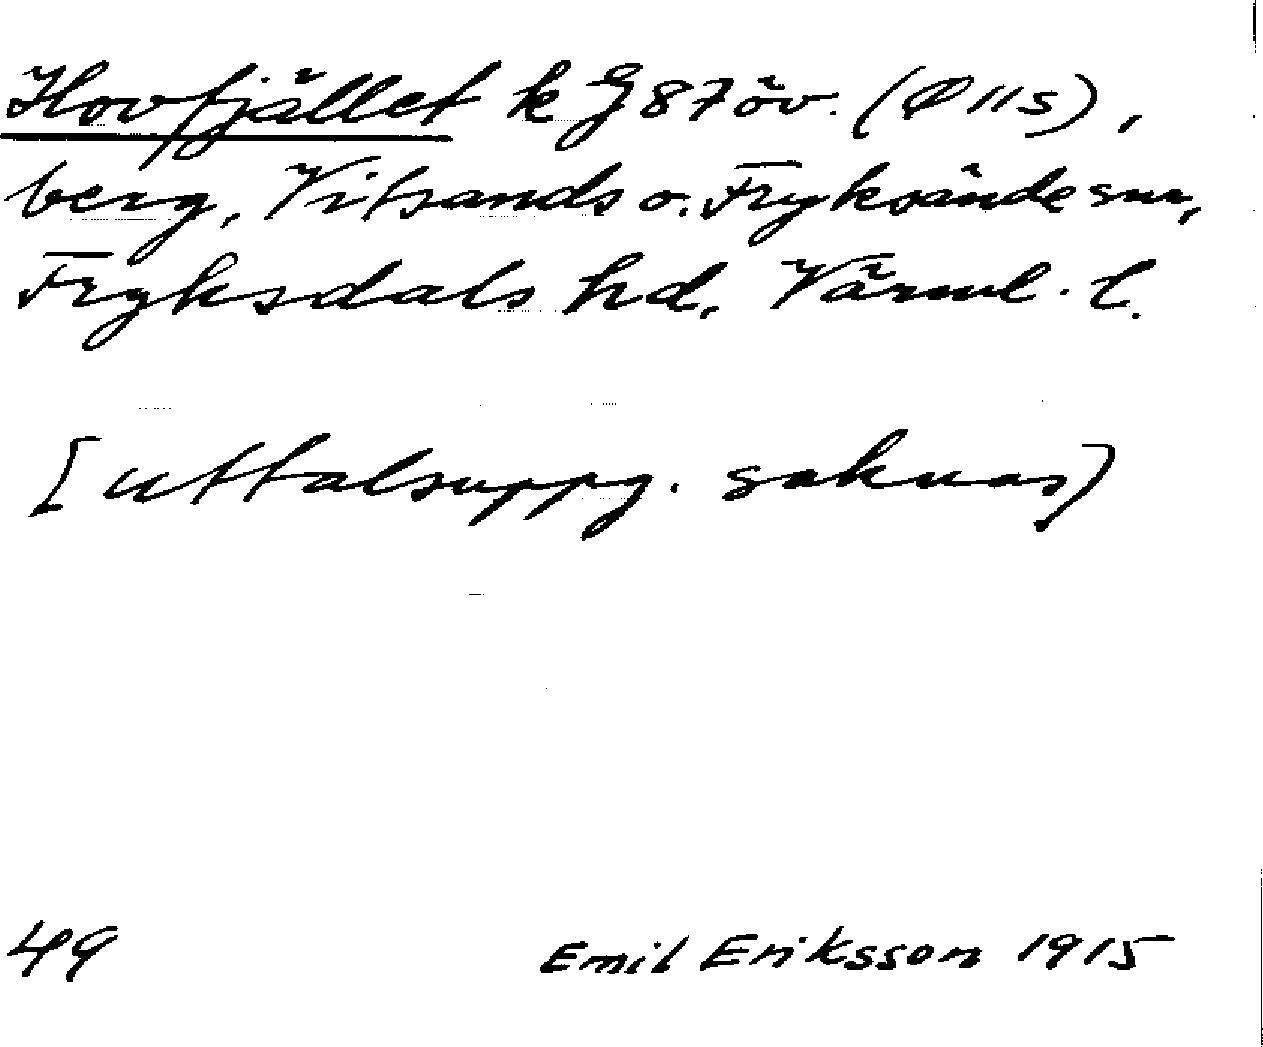 Hovfjället k G 87 öv. (Ø 11s),
berg, Vitsands o. Fryksände snr,
Fryksdals hd. Värml. l.
[uttalsuppg. saknas)
49 Emil Eriksson 1915